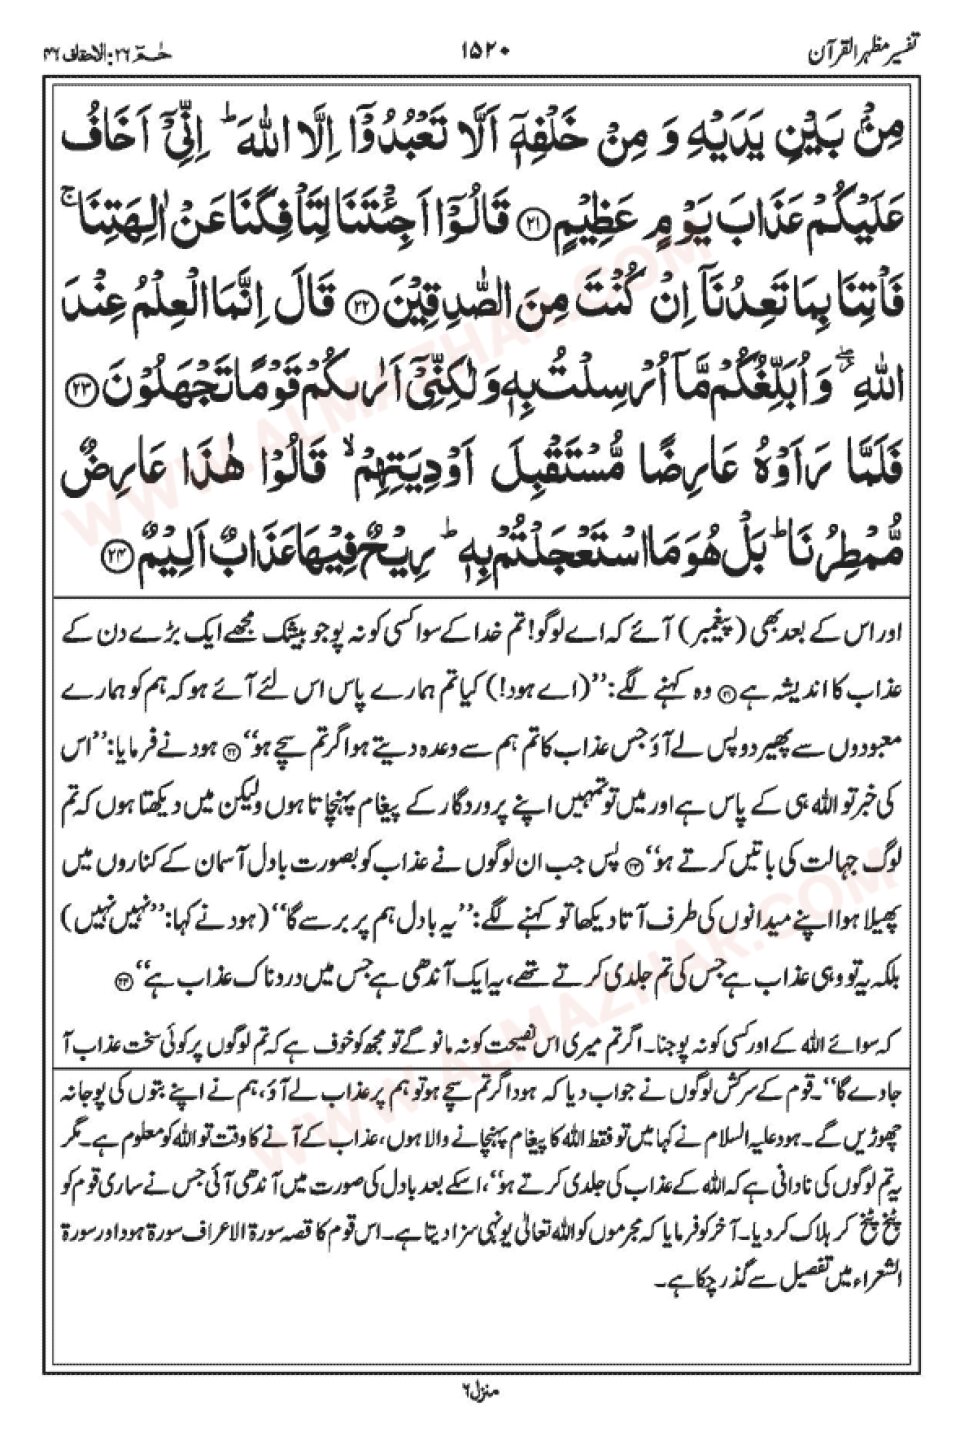 تفسیر مظہر القرآن
۱۵۲۰
حٰمٓ ۲۶: الاحقاف ۴۶
مِنْۢ بَيْنِ يَدَيْهِ وَ مِنْ خَلْفِهٖۤ اَلَّا تَعْبُدُوْۤا اِلَّا اللّٰهَ ؕ اِنِّيْۤ اَخَافُ
عَلَيْكُمْ عَذَابَ يَوْمٍ عَظِيْمٍ ﴿۲۱﴾ قَالُوْۤا اَجِئْتَنَا لِتَاْفِكَنَا عَنْ اٰلِهَتِنَا ۚ
فَاْتِنَا بِمَا تَعِدُنَاۤ اِنْ كُنْتَ مِنَ الصّٰدِقِيْنَ ﴿۲۲﴾ قَالَ اِنَّمَا الْعِلْمُ عِنْدَ
اللّٰهِ ۖؗ وَ اُبَلِّغُكُمْ مَّاۤ اُرْسِلْتُ بِهٖ وَ لٰكِنِّيْۤ اَرٰىكُمْ قَوْمًا تَجْهَلُوْنَ ﴿۲۳﴾
فَلَمَّا رَاَوْهُ عَارِضًا مُّسْتَقْبِلَ اَوْدِيَتِهِمْ ۙ قَالُوْا هٰذَا عَارِضٌ
مُّمْطِرُنَا ؕ بَلْ هُوَ مَا اسْتَعْجَلْتُمْ بِهٖ ؕ رِيْحٌ فِيْهَا عَذَابٌ اَلِيْمٌ ﴿۲۴﴾
اور اس کے بعد بھی (پیغمبر) آئے کہ اے لوگو! تم خدا کے سوا کسی کو نہ پوجو بیشک مجھے ایک بڑے دن کے
عذاب کا اندیشہ ہے ﴿۲۱﴾ وہ کہنے لگے: ’’(اے ہود!) کیا تم ہمارے پاس اس لئے آئے ہو کہ ہم کو ہمارے
معبودوں سے پھیر دو پس لے آؤ جس عذاب کا تم ہم سے وعدہ دیتے ہو اگر تم سچے ہو‘‘ ﴿۲۲﴾ ہود نے فرمایا: ’’اس
کی خبر تو اللہ ہی کے پاس ہے اور میں تو تمہیں اپنے پروردگار کے پیغام پہنچاتا ہوں ولیکن میں دیکھتا ہوں کہ تم
لوگ جہالت کی باتیں کرتے ہو‘‘ ﴿۲۳﴾ پس جب ان لوگوں نے عذاب کو بصورت بادل آسمان کے کناروں میں
پھیلا ہوا اپنے میدانوں کی طرف آتا دیکھا تو کہنے لگے: ’’یہ بادل ہم پر برسے گا‘‘ (ہود نے کہا: ’’نہیں نہیں)
بلکہ یہ تو وہی عذاب ہے جس کی تم جلدی کرتے تھے، یہ ایک آندھی ہے جس میں دردناک عذاب ہے‘‘ ﴿۲۴﴾
کہ سوائے اللہ کے اور کسی کو نہ پوجنا۔ اگر تم میری اس نصیحت کو نہ مانو گے تو مجھ کو خوف ہے کہ تم لوگوں پر کوئی سخت عذاب آ
جاوے گا‘‘۔ قوم کے سرکش لوگوں نے جواب دیا کہ ہود اگر تم سچے ہو تو ہم پر عذاب لے آؤ، ہم نے اپنے بتوں کی پوجا نہ
چھوڑیں گے۔ ہود علیہ السلام نے کہا میں تو فقط اللہ کا پیغام پہنچانے والا ہوں، عذاب کے آنے کا وقت تو اللہ کو معلوم ہے۔ مگر
یہ تم لوگوں کی نادانی ہے کہ اللہ کے عذاب کی جلدی کرتے ہو‘‘، اسکے بعد بادل کی صورت میں آندھی آئی جس نے ساری قوم کو
پٹخ پٹخ کر ہلاک کر دیا۔ آخر کو فرمایا کہ مجرموں کو اللہ تعالیٰ یونہی سزا دیتا ہے۔ اس قوم کا قصہ سورۃ الاعراف سورۃ ہود اور سورۃ
الشعراء میں تفصیل سے گذر چکا ہے۔
منزل ۶
WWW.ALMAZHAR.COM
WWW.ALMAZHAR.COM